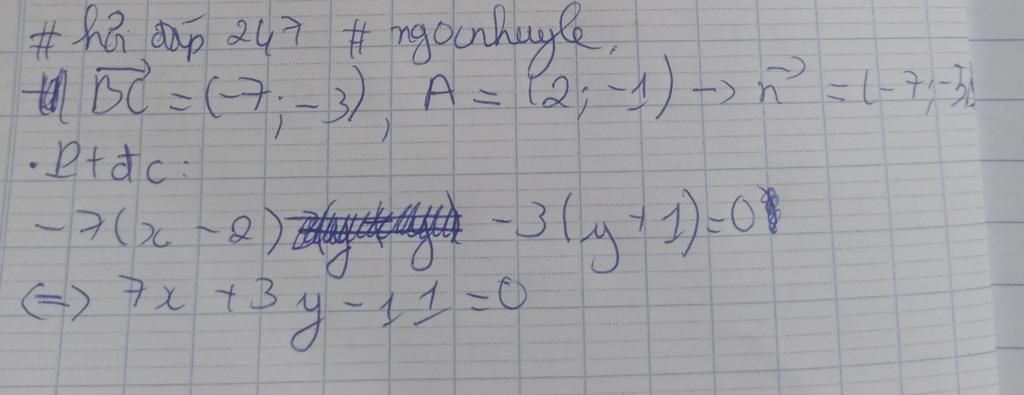 # hỏi đáp 247 # ngocnhuyle.
BC→ = (-7; -3), A = (2; -1) → n→ = (-7; -3)
. Ptđc:
-7(x - 2) - 3(y + 1) = 0
<=> 7x + 3y - 11 = 0